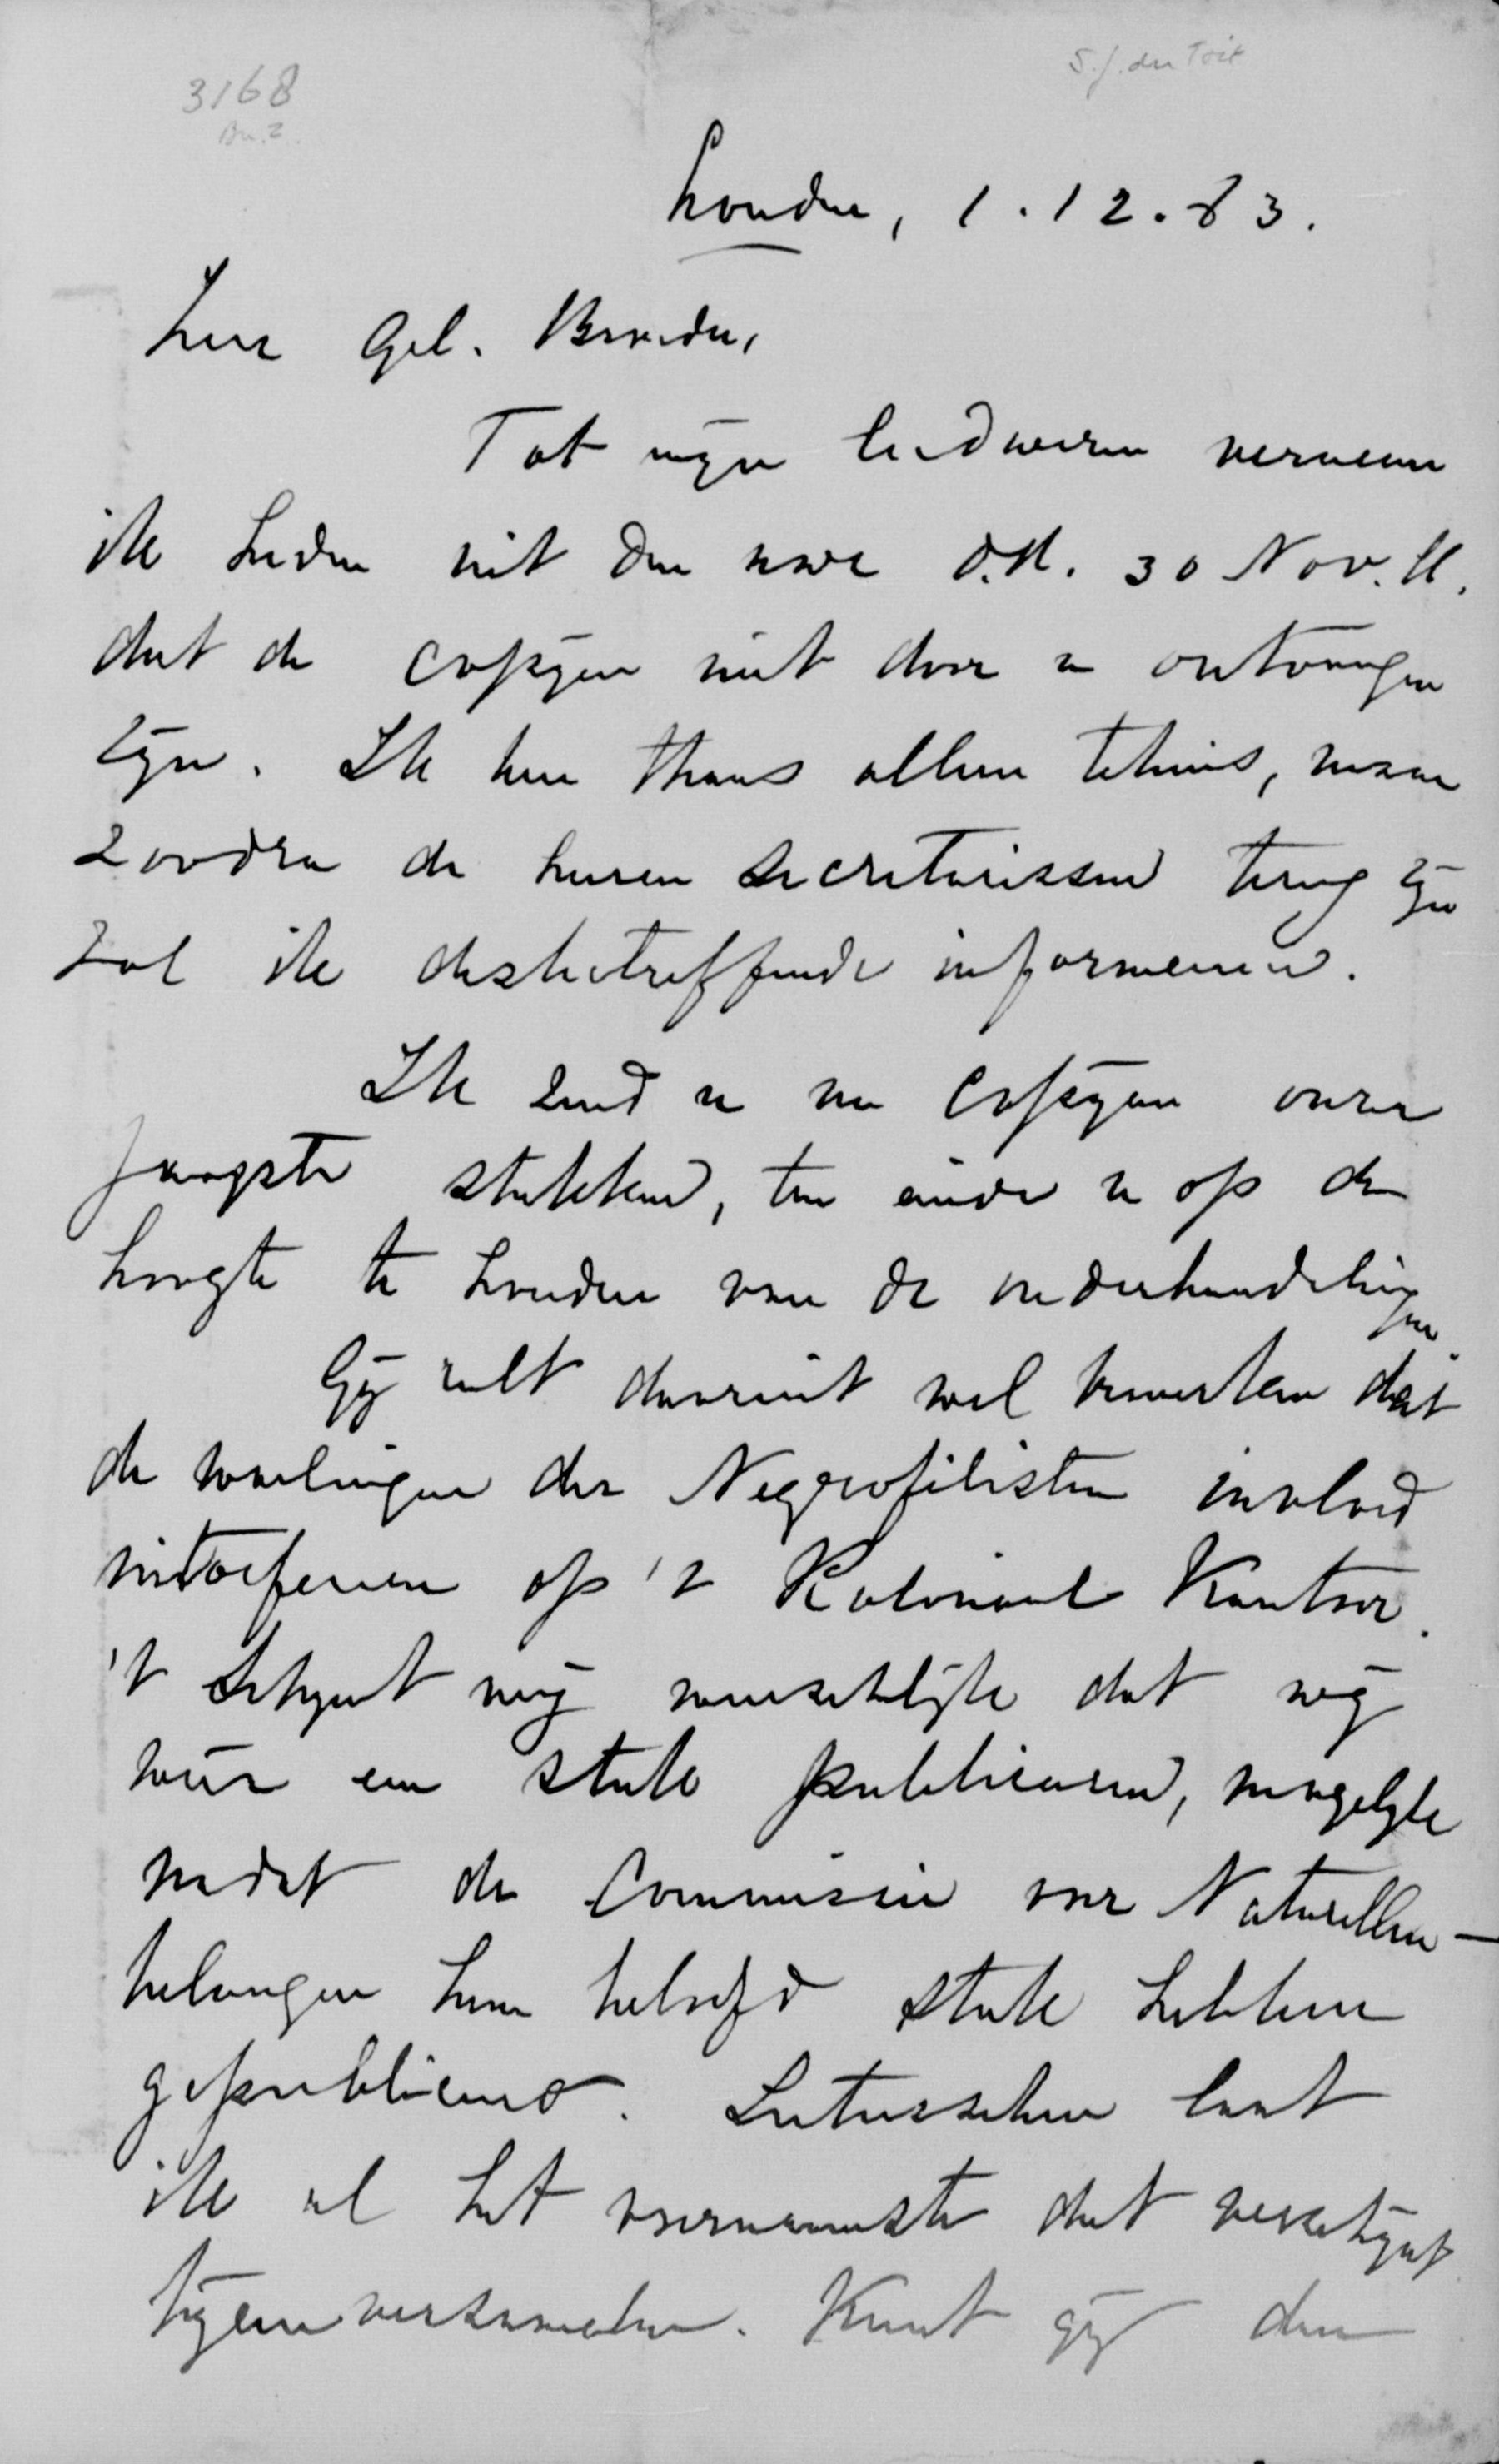 3168
Bu.2.
S.J. du Toit
Londen, 1.12.83.
Zeer Gel. Broeder,
Tot mijn leedwezen verneem
ik heden uit den uwe d.d. 30 Nov. ll.
dat de copijen niet door u ontvangen
zijn. Ik ben thans alleen tehuis, maar
zoodra de heeren Secretarissen terug zijn
zal ik desbetreffende informeeren.
Ik zend u nu copijen onzer
jongste stukken, ten einde u op de
hoogte te houden van de onderhandelingen.
Gij zult daaruit wel bemerken dat
de woelingen der Negrofilisten invloed
uitoefenen op 't Koloniaal Kantoor.
't Schijnt mij wenschelijk dat wij
weer een stuk publiceeren, mogelijk
nadat de Commissie voor Naturellen-
belangen hun beloofd stuk hebben
gepubliceerd. Intusschen laat
ik al het voornaamste dat verschijnt
bijeenverzamelen. Kunt gij dan